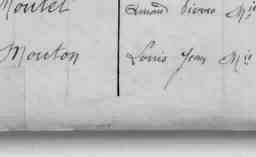 Moutet Amand Pierre Mie
Mouton Louis Jean Mie